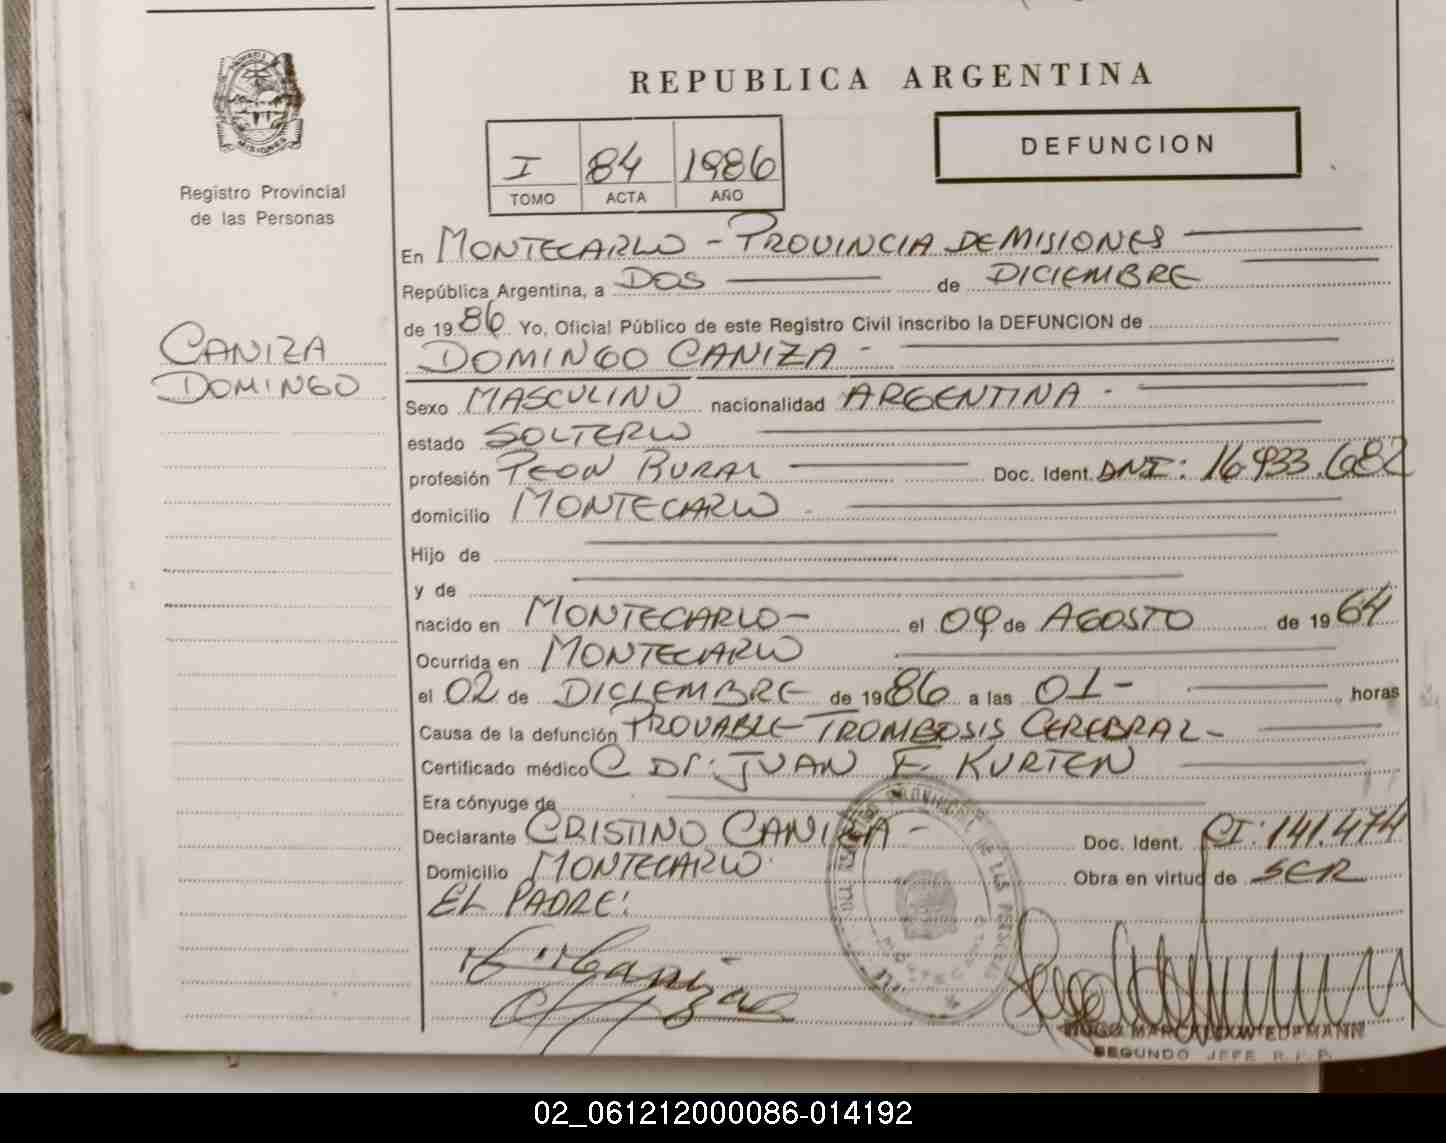 REPUBLICA ARGENTINA
MISIONES
Registro Provincial
de las Personas
I 84 1986
TOMO ACTA AÑO
DEFUNCION
CANIZA
DOMINGO
En MONTECARLO - PROVINCIA DE MISIONES
República Argentina, a DOS de DICIEMBRE
de 1986 Yo, Oficial Público de este Registro Civil inscribo la DEFUNCION de
DOMINGO CANIZA -
Sexo MASCULINO nacionalidad ARGENTINA -
estado SOLTERO
profesión PEON RURAL Doc. Ident. DNI: 16.933.682
domicilio MONTECARLO
Hijo de
y de
nacido en MONTECARLO - el 04 de AGOSTO de 1964
Ocurrida en MONTECARLO
el 02 de DICIEMBRE de 1986 a las 01 - horas
Causa de la defunción PROVABLE TROMBOSIS CEREBRAL -
Certificado médico Dr. JUAN F. KURTEN
Era cónyuge de
Declarante CRISTINO CANIZA - Doc. Ident. CI: 141.474
Domicilio MONTECARLO Obra en virtud de SER
EL PADRE:
HUGO MARCELO WIEDEMANN
SEGUNDO JEFE R.P.P.
02_061212000086-014192